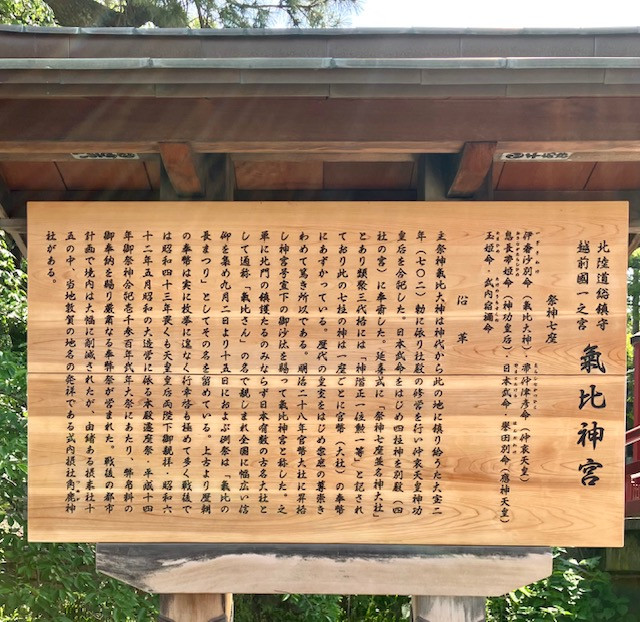 北陸道総鎮守
越前國一之宮
氣比神宮
祭神七座
伊奢沙別命（氣比大神）帯仲津彦命（仲哀天皇）
息長帯姫命（神功皇后）日本武命・誉田別命（應神天皇）
玉姫命・武内宿禰命
沿革
主祭神氣比大神は神代から此の地に鎮り給うた大宝二
年（七〇二）勅に依り社殿の修営を行い仲哀天皇神功
皇后を合祀した。日本武命をはじめ四柱神を別殿（四
社の宮）に奉斎した。延喜式に「祭神七座並名神大社」
とあり類聚三代格には「神階正一位勲一等」と記され
ており此の七柱の神は一座ごとに官幣（大社）の奉幣
にあずかっている。歴代の皇室をはじめ衆庶の尊崇き
わめて篤き所以である。明治二十八年官幣大社に昇格
し神宮号宣下の御沙汰を賜って氣比神宮と称した。之
單に北門の鎮護たるのみならず日本有数の古名大社と
して通称「氣比さん」の名で親しまれ全國に幅広い信
仰を集め九月二日より十五日におよぶ例祭は「氣比の
長まつり」としてその名を留めている。上古より歴朝
の奉幣は実に枚挙に遑なく行幸啓も極めて多く戦後で
は昭和四十三年畏くも天皇皇后両陛下御親拝、昭和六
十二年五月昭和の大造営に依る本殿遷座祭、平成十四
年御祭神合祀壱千参百年式年大祭にあたり、幣帛料の
御奉納を賜り厳肅なる奉幣祭が営まれた。戦後の都市
計画で境内は大幅に削減されたが、由緒ある摂末社十
五の中、当地敦賀の地名の発祥である式内摂社角鹿神
社がある。